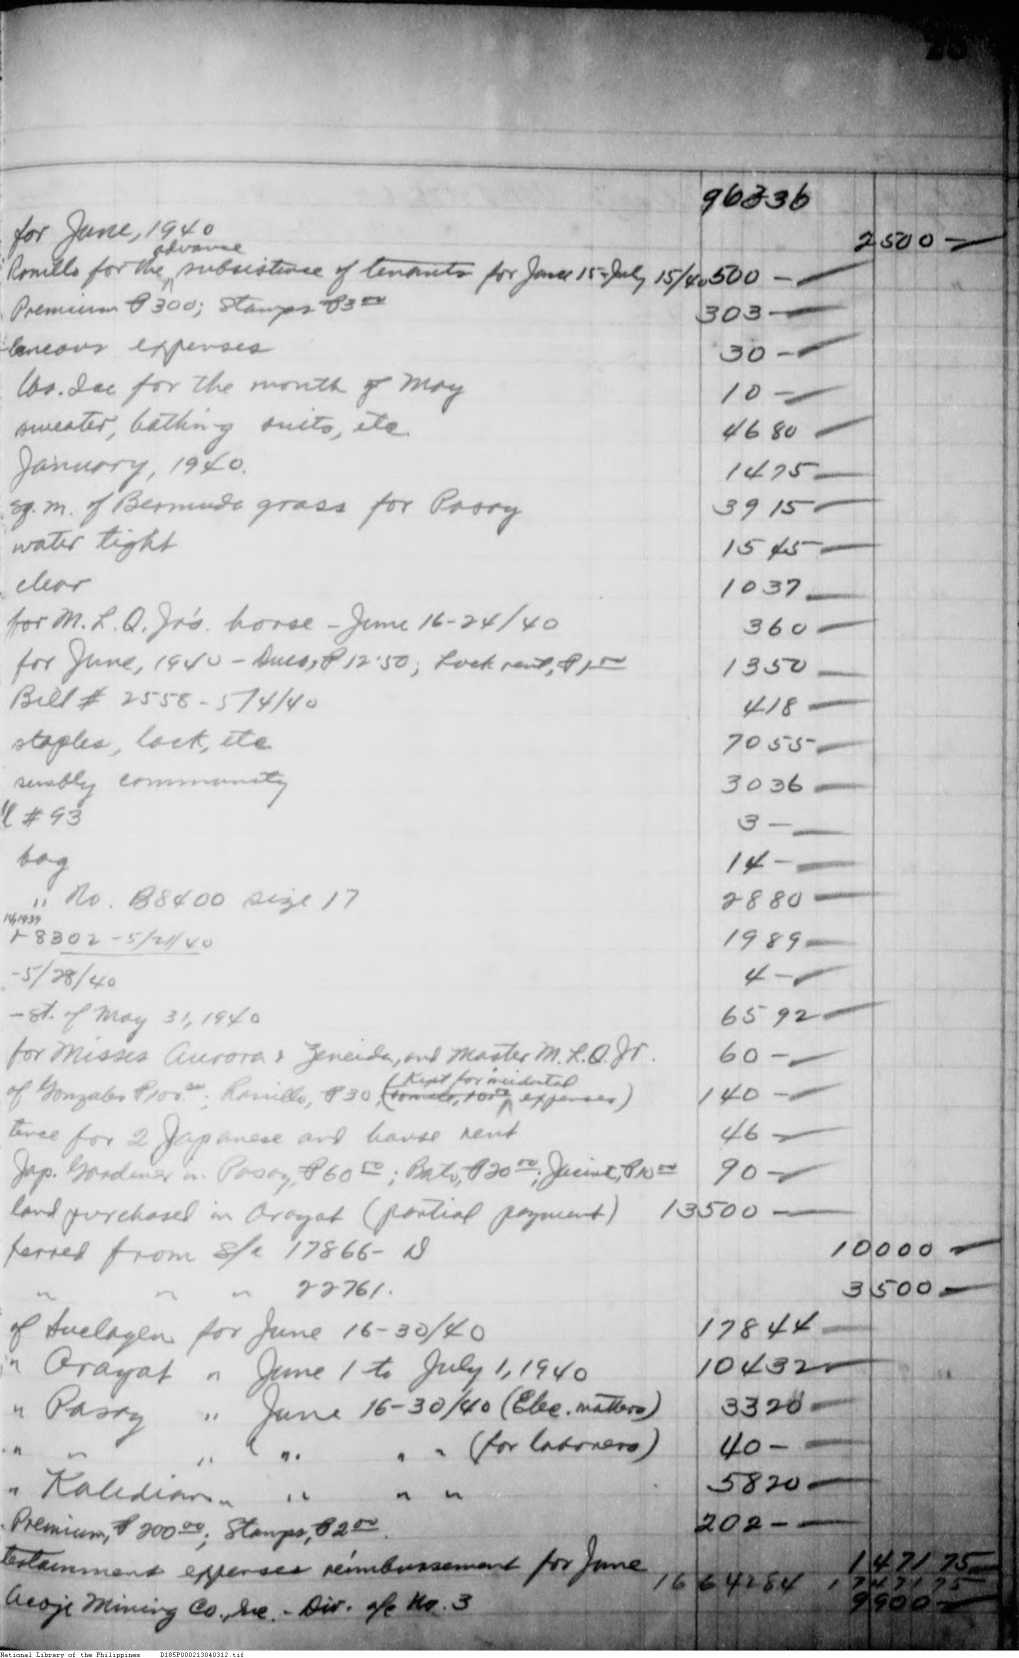 28
963 36
for June, 1940 2500 -
Romillo for the advance subsistence of tenants for June 15-July 15/40 500 -
Premium ₱300; Stamps ₱3 00 303 -
laneous expenses 30 -
lbs. Ice for the month of May 10 -
sweater, bathing suits, etc. 46 80
January, 1940. 14 75
sq. m. of Bermuda grass for Pasay 39 15
water tight 15 45
clear 10 37
for M. L. Q. Jr's. horse - June 16-24/40 3 60
for June, 1940 - Dues, ₱12.50; Lock rent, ₱1 00 13 50
Bill # 2558 - 5/4/40 4 18
staples, lock, etc. 70 55
sembly community 30 36
l # 93 3 -
bag 14 -
" No. B8400 size 17 28 80
8302 - 5/21/40 19 89
-5/28/40 4 -
- St. of May 31, 1940 65 92
for Misses Aurora & Zeneida, and Master M. L. Q. Jr. 60 -
of Gonzales ₱100 00; Romillo, ₱30, (Kept for incidental expenses) 140 -
tence for 2 Japanese and house rent 46 -
Jap. Gardener in Pasay, ₱60 00; Bato, ₱20 00; Jacint, ₱10 00 90 -
land purchased in Arayat (partial payment) 13500 -
ferred from S/a 17866 - D 10000 -
" " " 22761. 3500 -
of for June 16-30/40 178 44
" Arayat " June 1 to July 1, 1940 104 32
" Pasay " June 16-30/40 (Elec. matters) 33 20
" " " " " " " (for laborers) 40 -
" Kaledian " " " " 58 20
Premium, ₱200 00; Stamps, ₱2 00. 202 -
tertainment expenses reimbursement for June 1471 75
16642 84 17471 75
Acoje Mining Co., Inc. - Div. a/c No. 3 9900 -
National Library of the Philippines D185P000213040312.tif